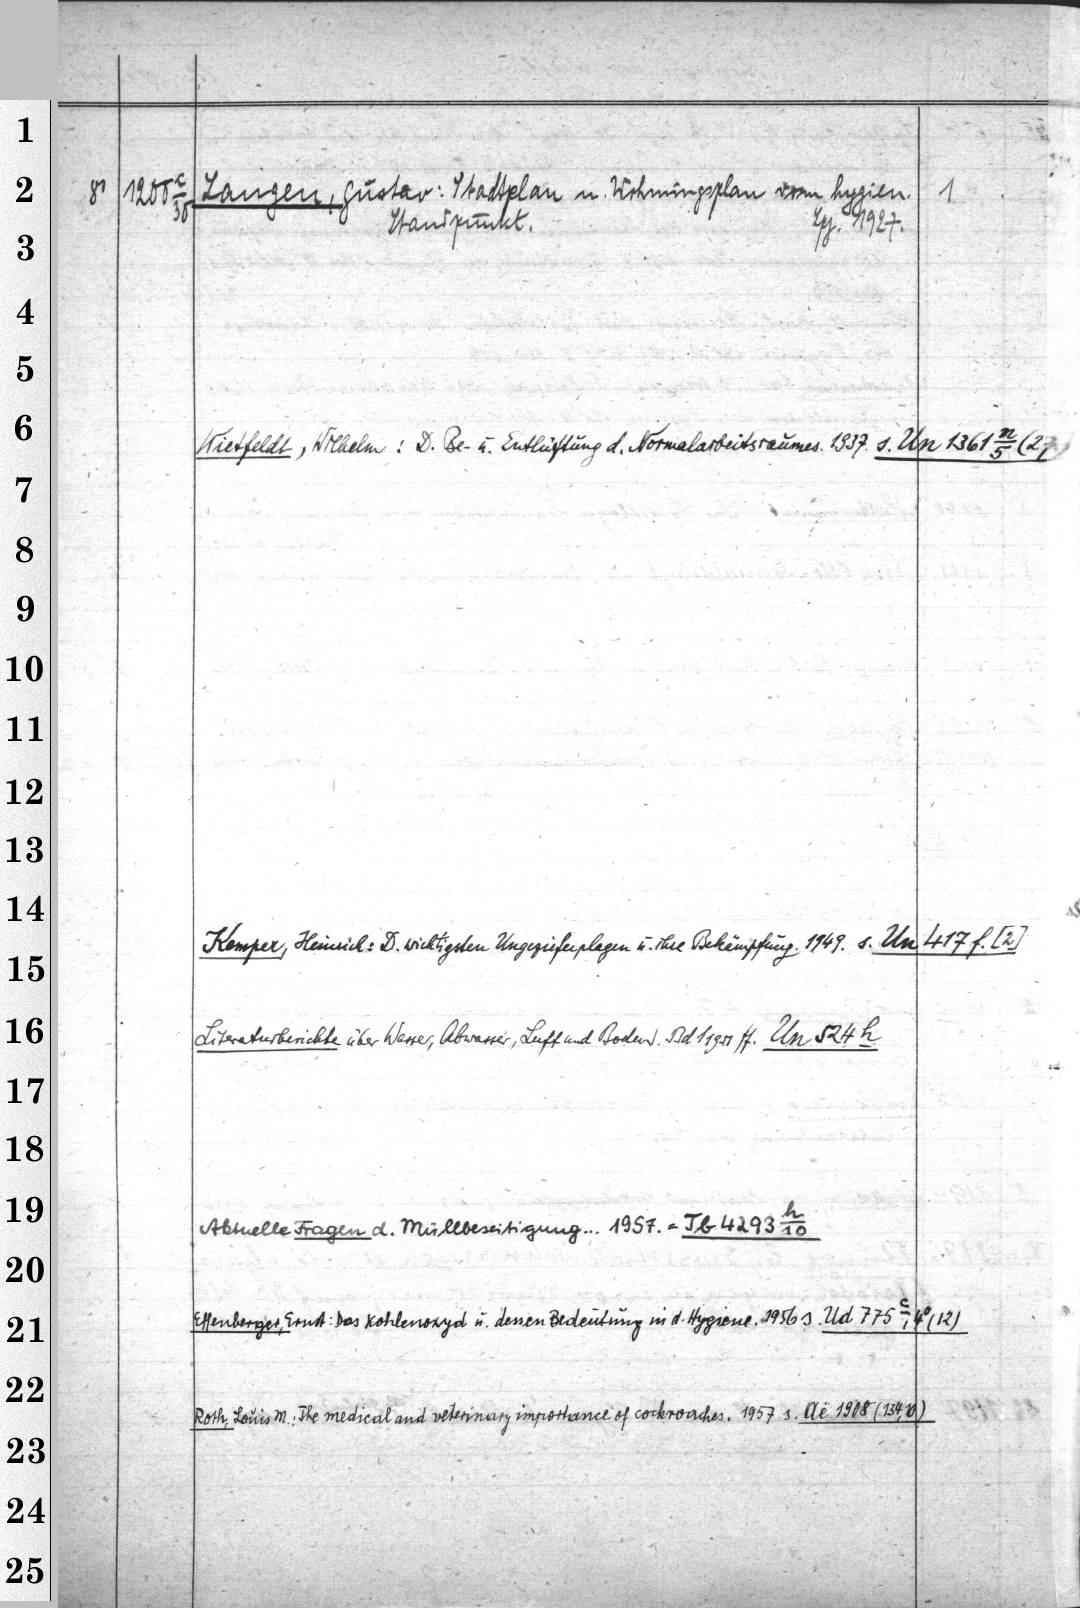 1
2
8° 1200 c/30 Langen, Gustav: Stadtplan u. Wohnungsplan vom hygien. 1
Standpunkt. Lpz. 1927.
3
4
5
6
Wietfeldt, Wilhelm: D. Be- u. Entlüftung d. Normalarbeitsraumes. 1937. s. Un 1361 n/5 (27)
7
8
9
10
11
12
13
14
Kemper, Heinrich: D. wichtigsten Ungezieferplagen u. ihre Bekämpfung. 1949. s. Un 417 f. [2]
15
16
Literaturberichte über Wasser, Abwasser, Luft und Boden. Bd 1 1951 ff. Un 524 h
17
18
19
Aktuelle Fragen d. Müllbeseitigung... 1957. = Tb 4293 h/10
20
21
Effenberger, Ernst: Das Kohlenoxyd u. dessen Bedeutung in d. Hygiene. 1956 s. Ud 775 c/1 4° (12)
22
Roth, Louis M.: The medical and veterinary importance of cockroaches. 1957 s. Aë 1908 (134,10)
23
24
25